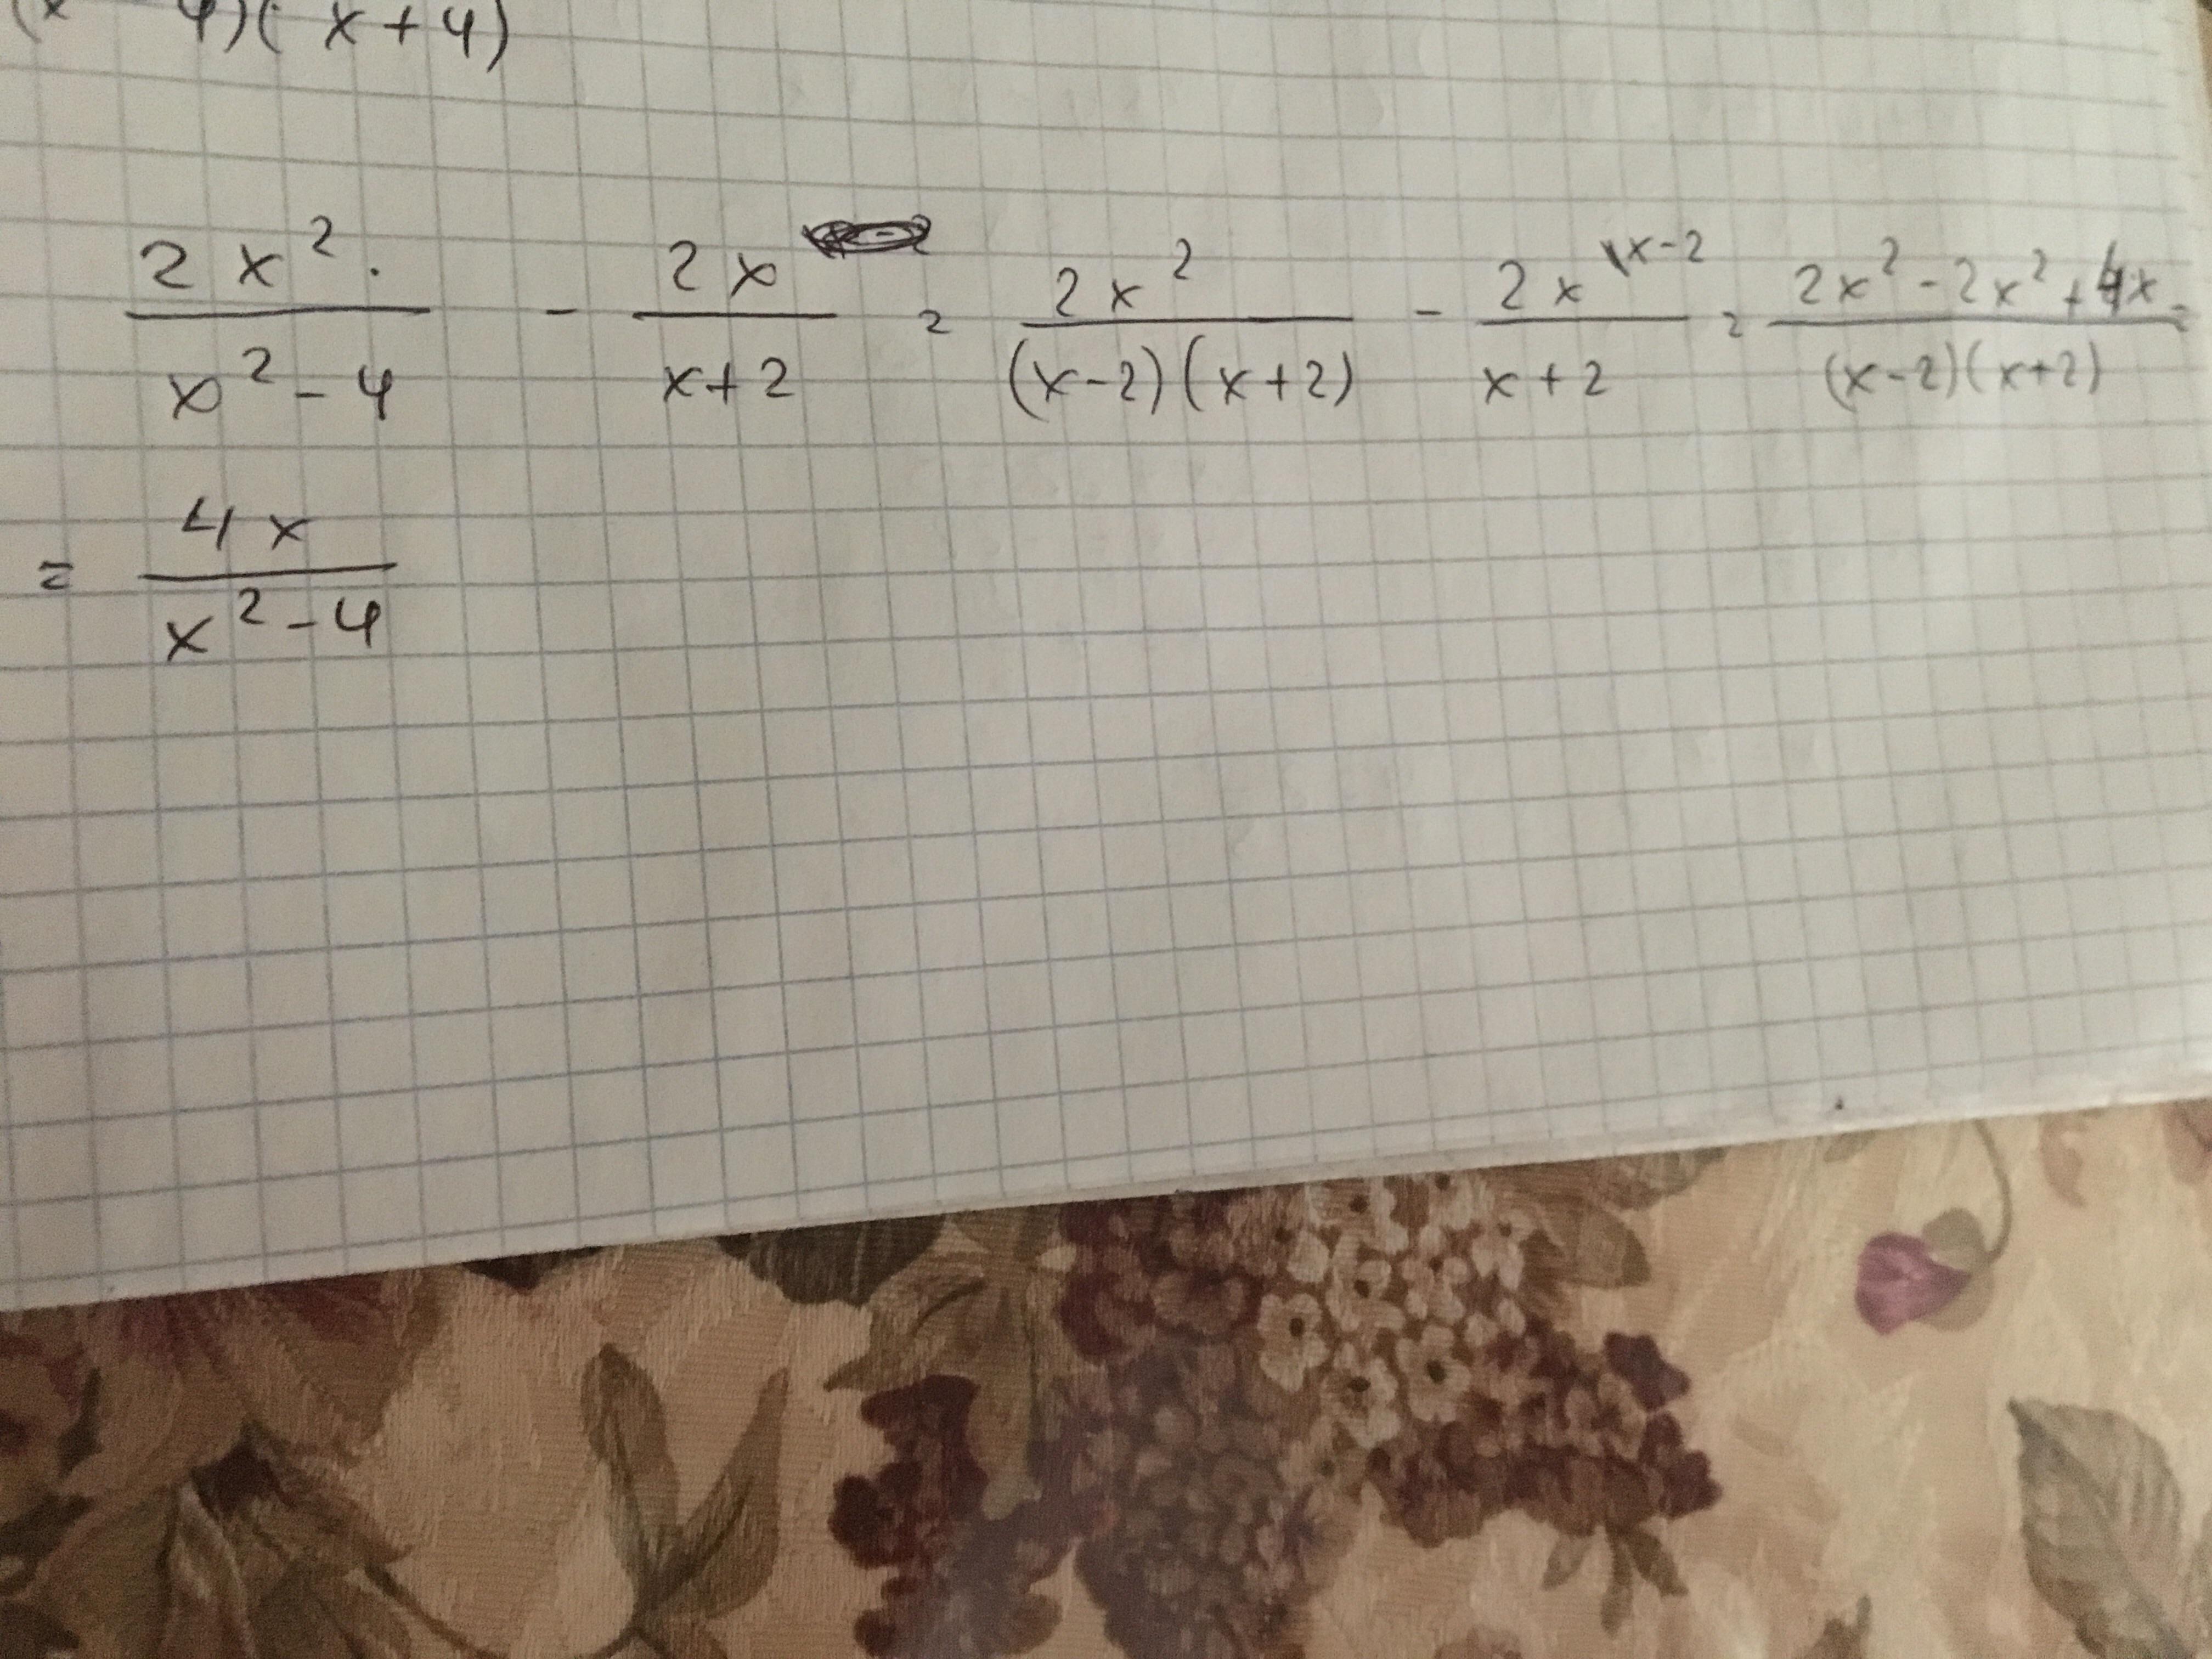 (x - 4)(x+4)
2x². / x²-4 - 2x / x+2 = 2x² / (x-2)(x+2) - 2x \x-2 / x+2 = 2x²-2x²+4x / (x-2)(x+2) =
= 4x / x²-4